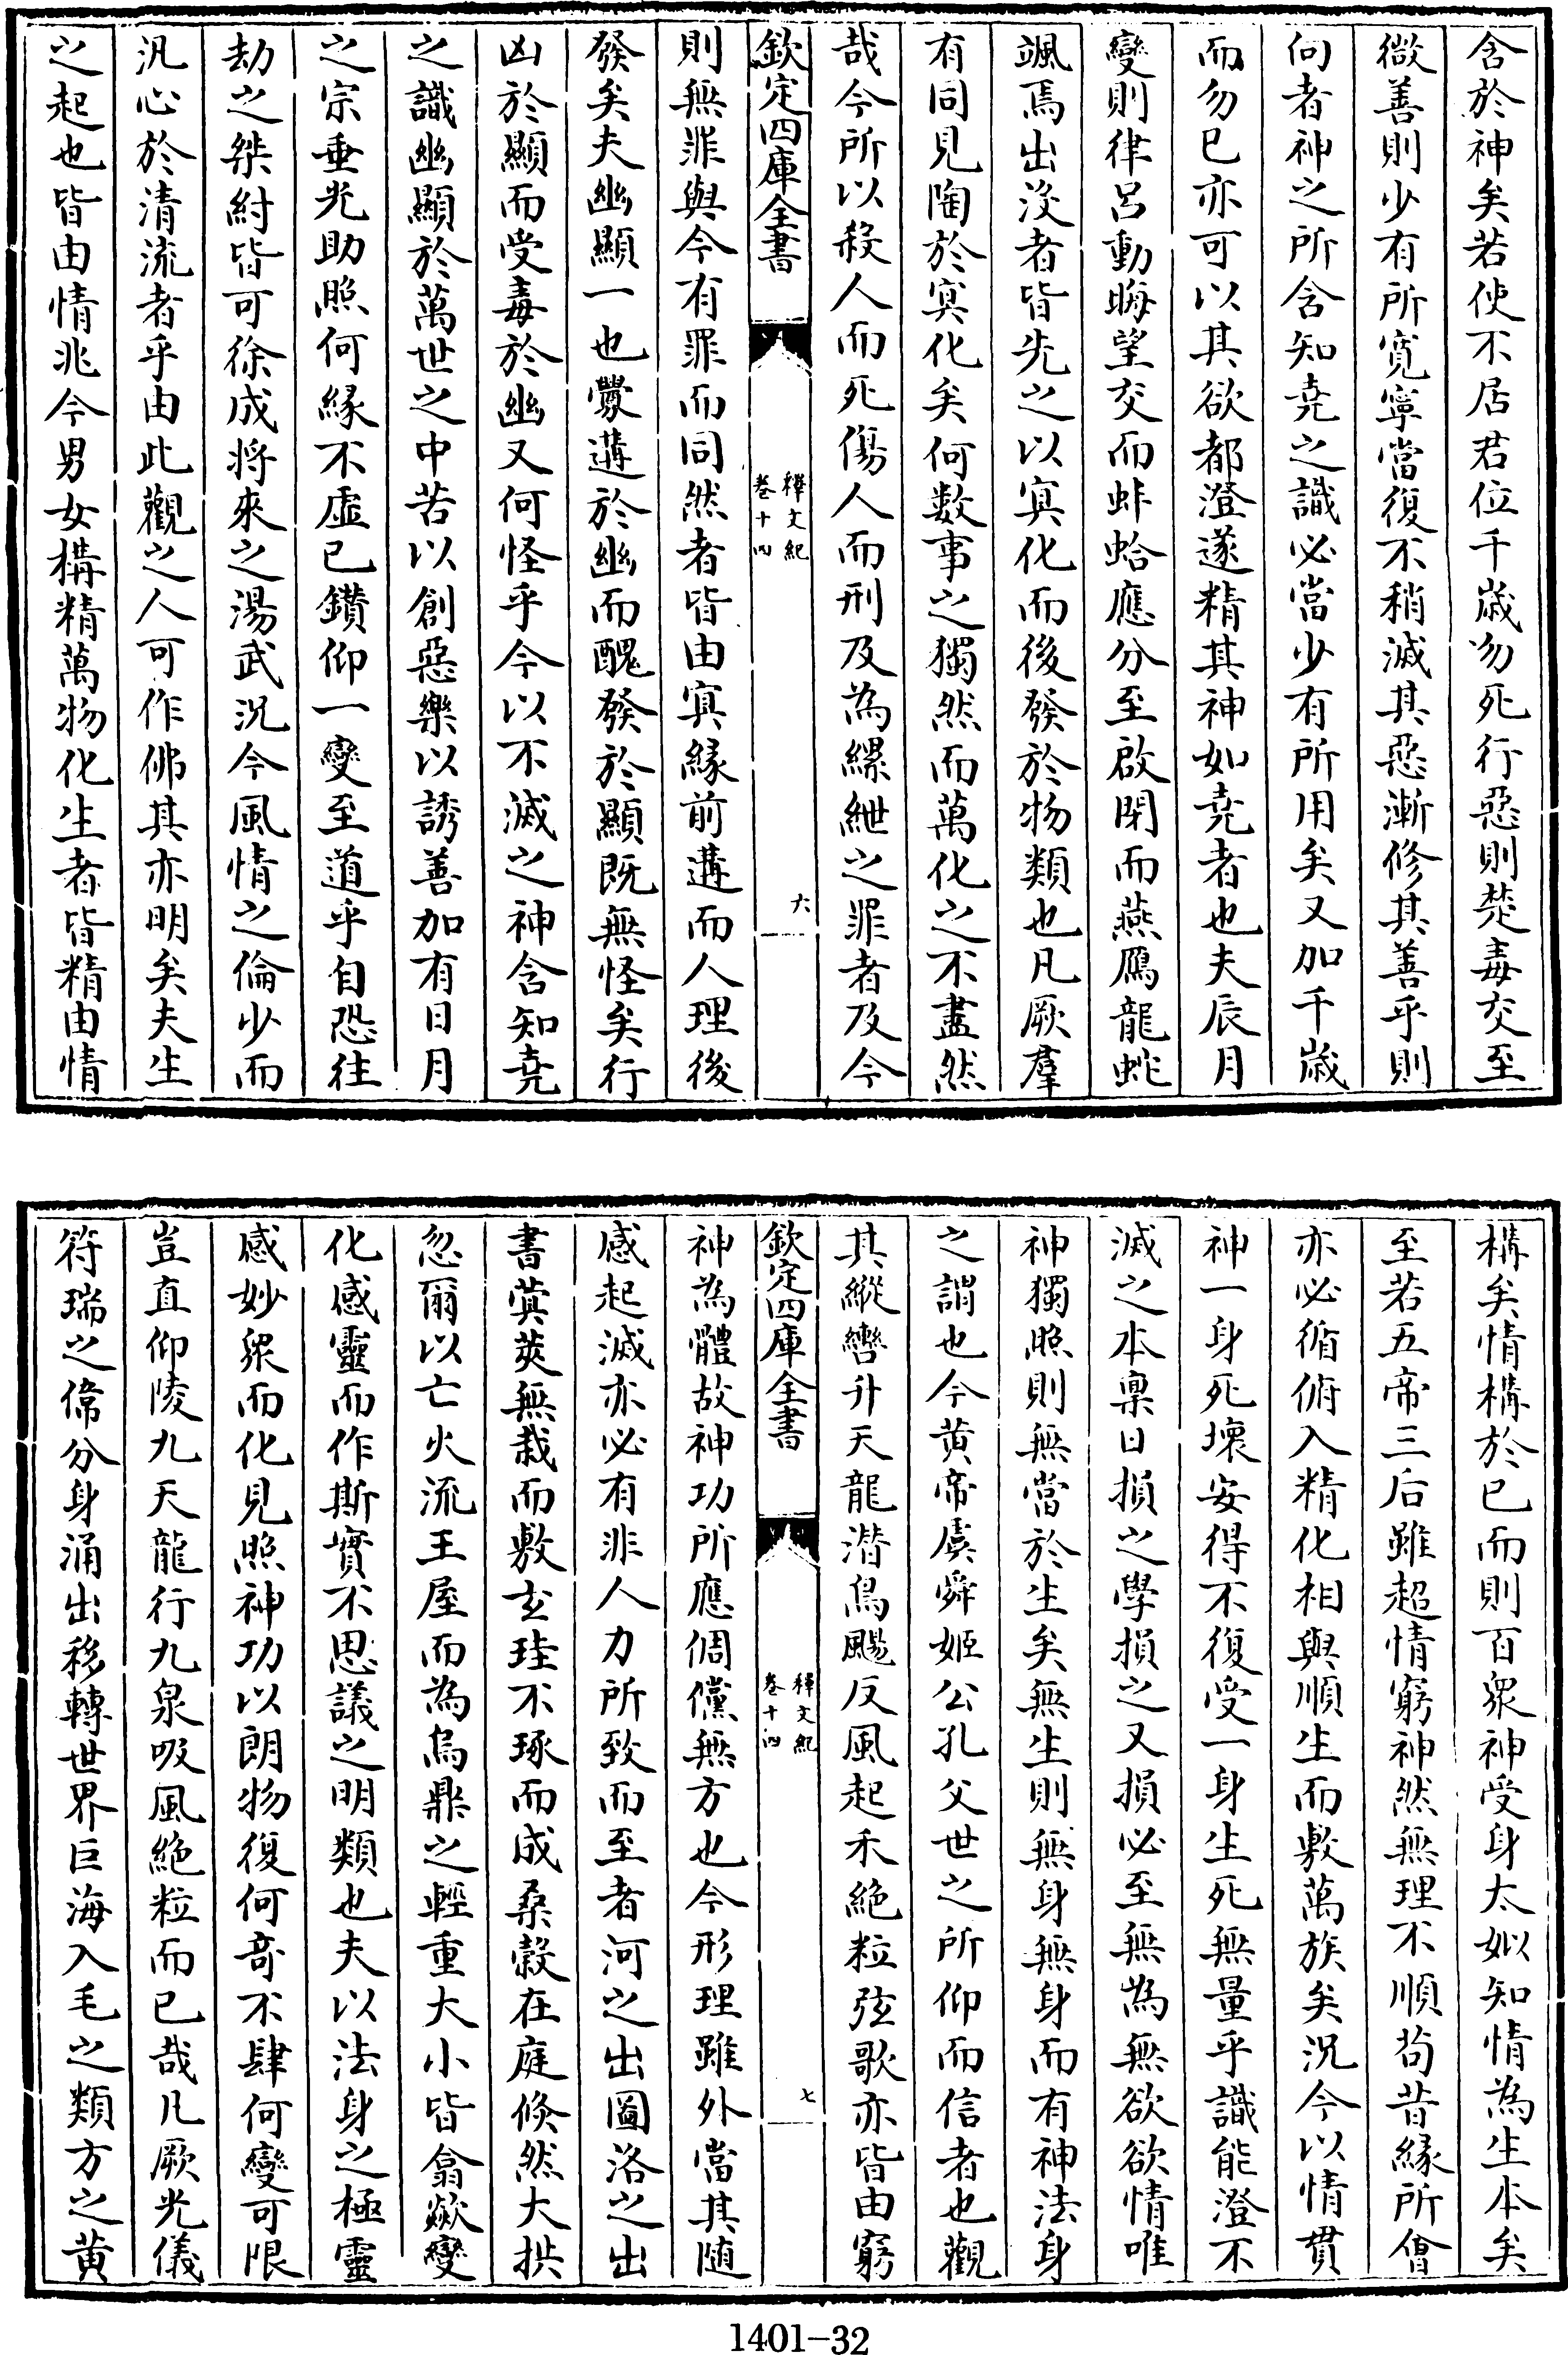 含於神矣若使不居君位千歲勿死行惡則楚毒交至
微善則少有所寛寧當復不稍滅其惡漸修其善乎則
向者神之所含知堯之識必當少有所用矣又加千歲
而勿已亦可以其欲都澄遂精其神如堯者也夫辰月
變則律吕動晦望交而蚌蛤應分至啟閉而燕鴈龍蛇
颯焉出没者皆先之以寘化而後發於物類也凡厥羣
有同見陶於寘化矣何數事之獨然而萬化之不盡然
哉今所以殺人而死傷人而刑及為縲紲之罪者及今
欽定四庫全書
釋文紀
卷十四
六
則無罪與今有罪而同然者皆由寘緣前遘而人理後
發矣夫幽顯一也釁遘於幽而醜發於顯既無怪矣行
凶於顯而受毒於幽又何怪乎今以不滅之神含知堯
之識幽顯於萬世之中苦以創惡樂以誘善加有日月
之宗垂光助照何緣不虛已鑽仰一變至道乎自恐往
劫之桀紂皆可徐成將來之湯武況今風情之倫少而
汎心於清流者乎由此觀之人可作佛其亦明矣夫生
之起也皆由情兆今男女構精萬物化生者皆精由情
構矣情構於已而則百衆神受身太姒知情為生本矣
至若五帝三后雖超情窮神然無理不順茍昔緣所會
亦必循俯入精化相與順生而敷萬族矣況今以情貫
神一身死壞安得不復受一身生死無量乎識能澄不
滅之本稟日損之學損之又損必至無為無欲欲情唯
神獨照則無當於生矣無生則無身無身而有神法身
之謂也今黄帝虞舜姬公孔父世之所仰而信者也觀
其縱轡升天龍潛鳥颺反風起禾絶粒弦歌亦皆由窮
欽定四庫全書
釋文紀
卷十四
七
神為體故神功所應倜儻無方也今形理雖外當其随
感起滅亦必有非人力所致而至者河之出圖洛之出
書蓂莢無栽而敷玄珪不琢而成桑榖在庭倐然大拱
忽爾以亡火流王屋而為烏鼎之輕重大小皆翕歘變
化感靈而作斯實不思議之明類也夫以法身之極靈
感妙衆而化見照神功以朗物復何竒不肆何變可限
豈直仰陵九天龍行九泉吸風絶粒而已哉凡厥光儀
符瑞之偉分身涌出移轉世界巨海入毛之類方之黄
1401-32